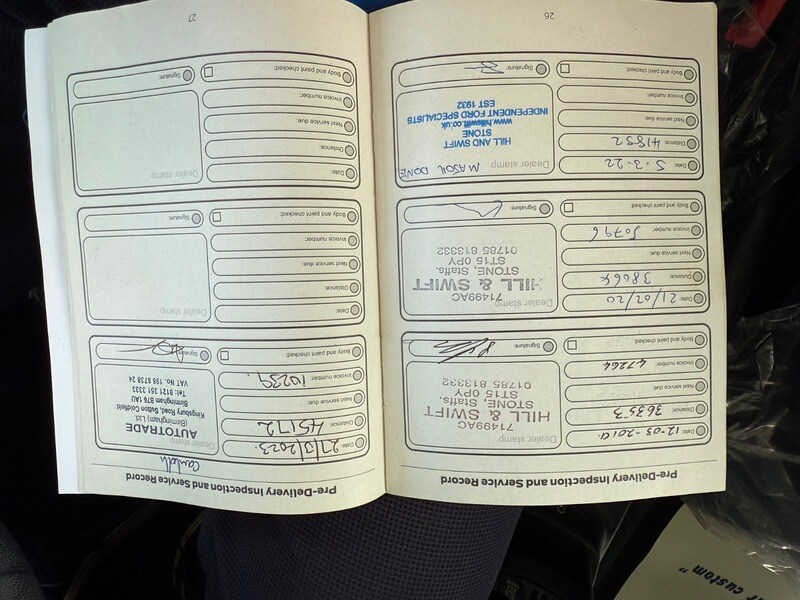 Pre-Delivery Inspection and Service Record
Date: 12-03-2019.
Distance: 36353
Next service due:
Invoice number: 47264
Body and paint checked:
Dealer stamp
71499AC
HILL & SWIFT
STONE, Staffs.
ST15 0PY
01785 813332
Signature:
Date: 21/02/20
Distance: 38064
Next service due:
Invoice number: 50796
Body and paint checked:
Dealer stamp
71499AC
HILL & SWIFT
STONE, Staffs.
ST15 0PY
01785 813332
Signature:
Date: 5.3.22
Distance: 41852
Next service due:
Invoice number:
Body and paint checked:
Dealer stamp
HILL AND SWIFT
STONE
www.hillswift.co.uk
INDEPENDENT FORD SPECIALISTS
EST 1932
Signature:
26
Pre-Delivery Inspection and Service Record
Date: 27/3/2023.
Distance: 45172
Next service due:
Invoice number: 10239.
Body and paint checked:
Dealer stamp
AUTOTRADE
(Birmingham) Ltd.
Kingsbury Road, Sutton Coldfield
Birmingham B76 1AU
Tel: 0121 351 3333
VAT No. 198 8738 24
Signature:
Date:
Distance:
Next service due:
Invoice number:
Body and paint checked:
Dealer stamp
Signature:
Date:
Distance:
Next service due:
Invoice number:
Body and paint checked:
Dealer stamp
Signature:
27
custom"